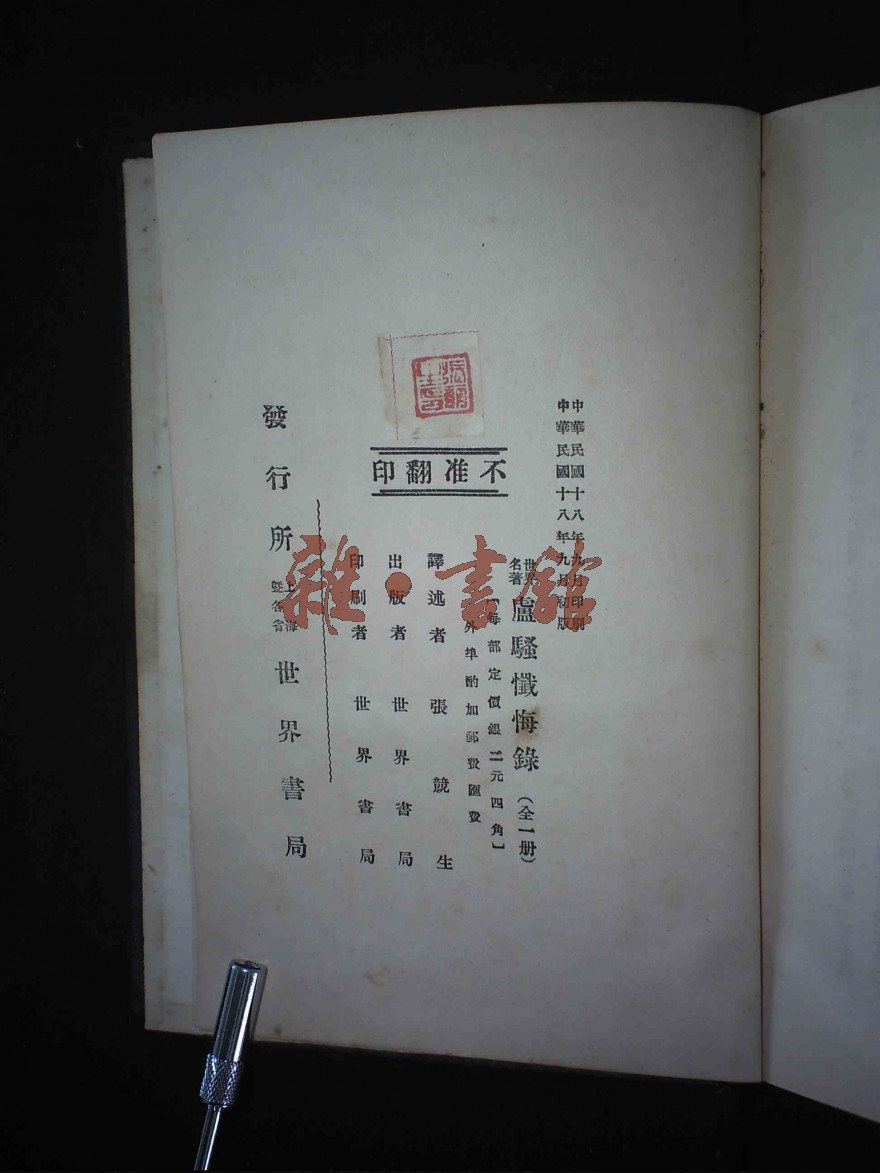 中華民國十八年九月印刷
中華民國十八年九月初版
世界名著 盧騷懺悔錄 (全一册)
【每部定價銀二元四角】
外埠酌加郵費匯費
不准翻印
譯述者 張競生
出版者 世界書局
印刷者 世界書局
發行所 上海暨各省 世界書局
雜·書館